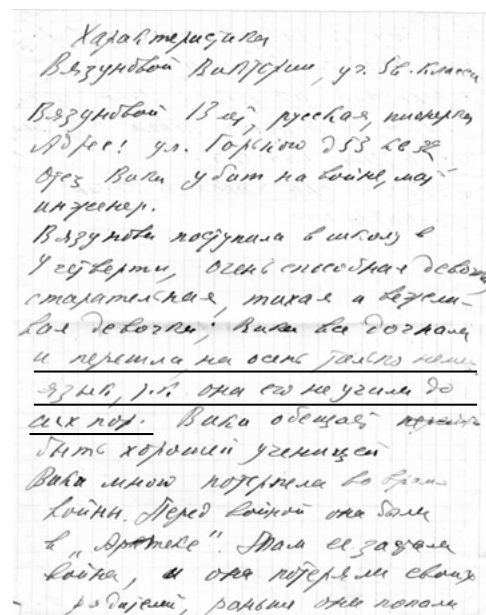 Характеристика
Вязуновой Виктории, уч. 5в. класса
Вязуновой 13 лет, русская, пионерка
Адрес: ул. Горького д 53 кв
Отец Вики убит на войне, мать
инженер.
Вязунова поступила в школу в
четверти, очень способная девочка
старательная, тихая и вежли-
вая девочка; Вика все догнала
и перешла, на осень только нем.
язык, т.к. она его не учила до
сих пор. Вика обещает
быть хорошей ученицей
Вика много потерпела во время
войны. Перед войной она была
в „Артеке". Там ее застала
война, и она потеряла своих
родителей, раньше они попали